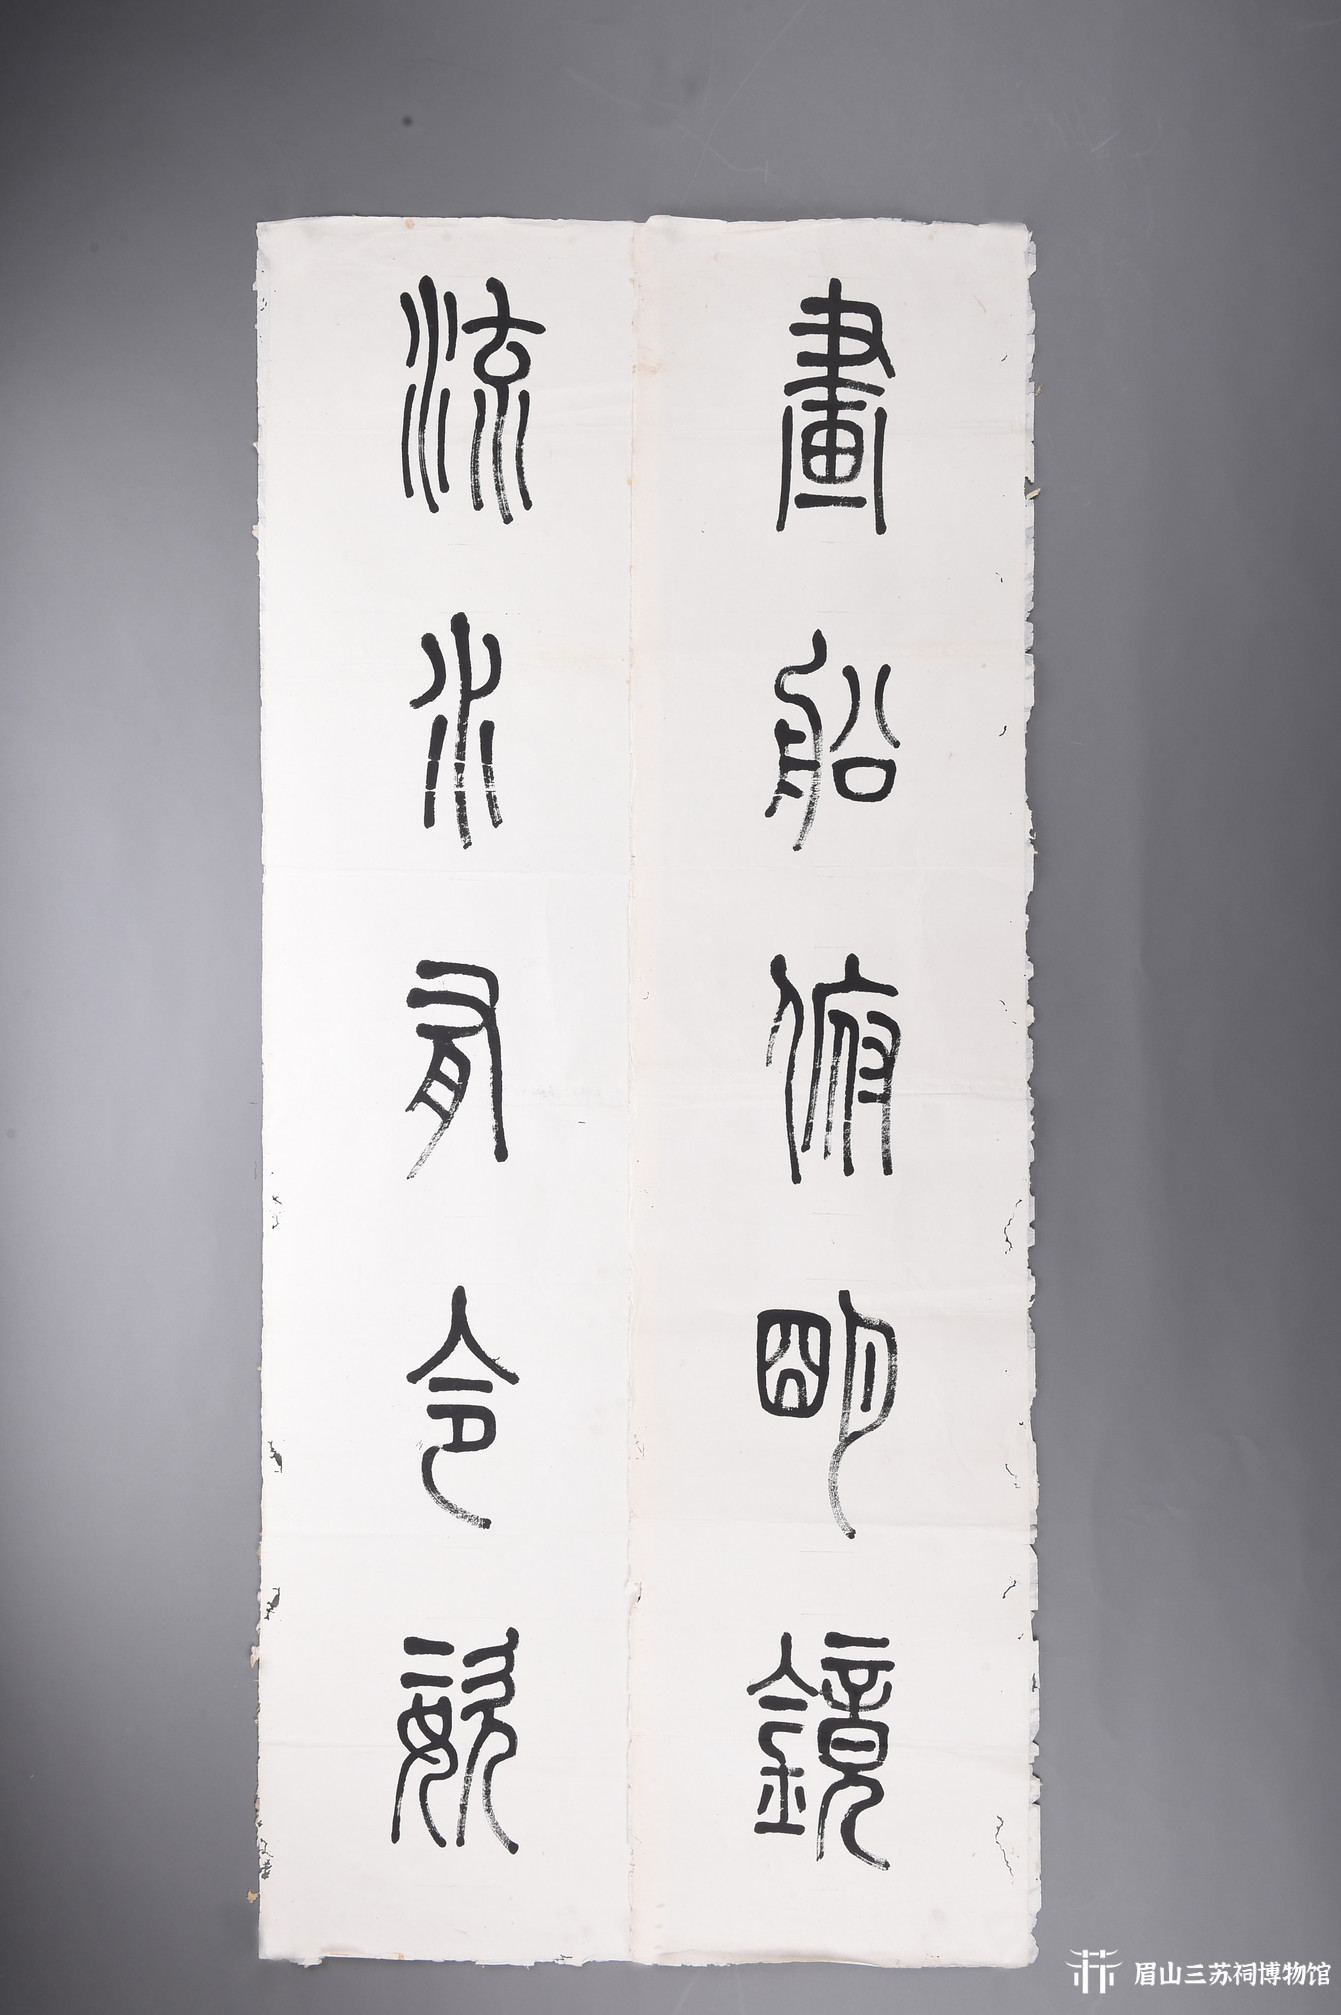 畫船俯明鏡
流水有令姿
眉山三苏祠博物馆